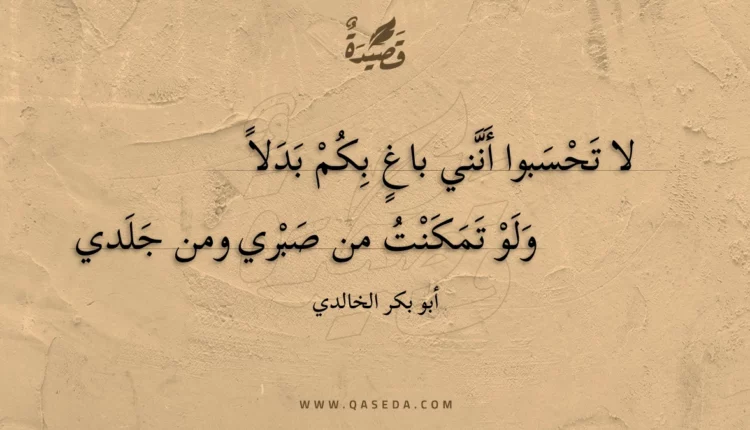 قَصِيدَةٌ
لا تَحْسَبوا أَنَّني باغٍ بِكُمْ بَدَلاً
وَلَوْ تَمَكَنْتُ من صَبْري ومن جَلَدي
أبو بكر الخالدي
WWW.QASEDA.COM